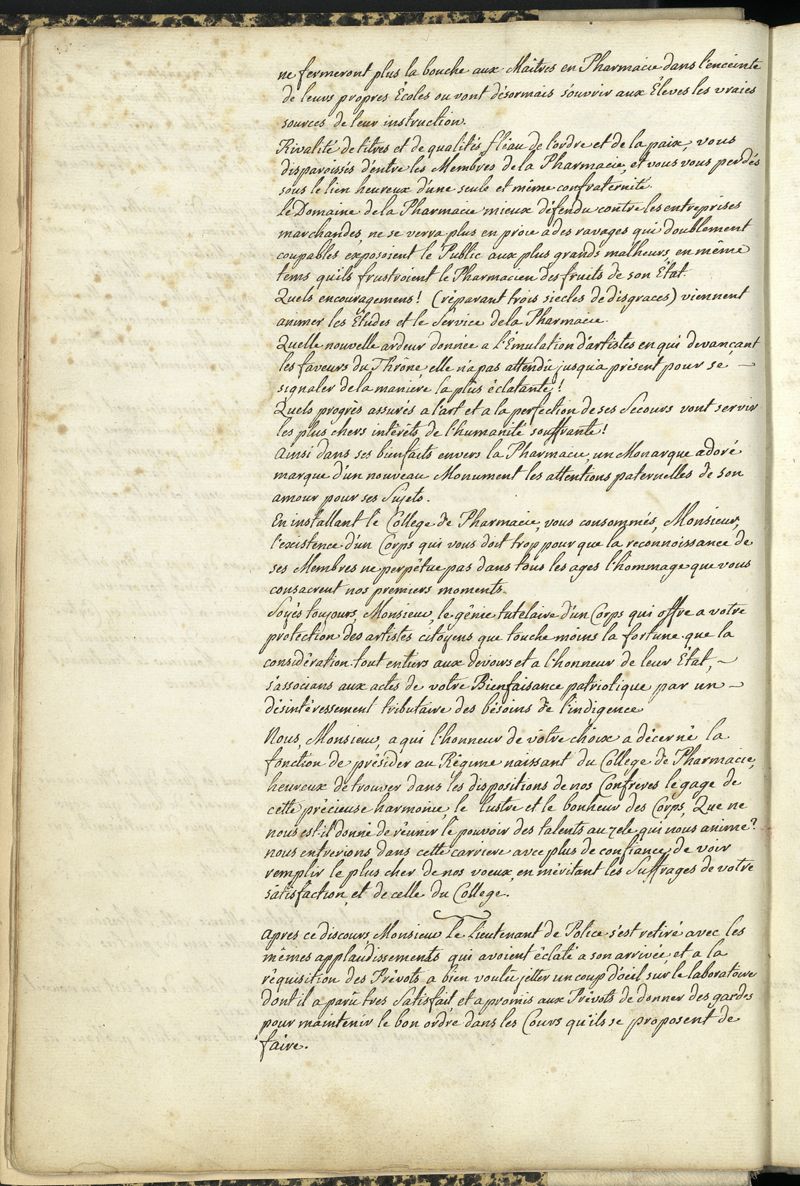 ne fermeront plus la bouche aux Maitres en Pharmacie dans l'enceinte
de leurs propres Ecoles ou vont désormais s'ouvrir aux Eleves les vraies
sources de leur instruction.
Rivalité de titres et de qualités fléau de l'ordre et de la paix, vous
disparoissés d'entre les Membres de la Pharmacie, et vous vous perdés
sous le lien heureux d'une seule et même confraternité.
Le Domaine de la Pharmacie mieux défendu contre les entreprises
marchandes, ne se verra plus en proie a des ravages qui doublement
coupables exposoient le Public aux plus grands malheurs en même
tems qu'ils frustroient le Pharmacien des fruits de son Etat.
Quels encouragemens! (réparant trois siecles de disgraces) viennent
animer les Etudes et le Service de la Pharmacie.
Quelle nouvelle ardeur donnée a l'Emulation d'artistes en qui devançant
les faveurs du Thrône, elle n'a pas attendu jusqu'a présent pour se
signaler de la maniere la plus éclatante!
Quels progrès assurés a l'art et a la perfection de ses Secours vont servir
les plus chers intérêts de l'humanité souffrante!
Ainsi dans ses bienfaits envers la Pharmacie, un Monarque adoré
marque d'un nouveau Monument les attentions paternelles de son
amour pour ses Sujets.
En installant le College de Pharmacie, vous consommés, Monsieur,
l'existence d'un Corps qui vous doit trop pour que la reconnoissance de
ses Membres ne perpétue pas dans tous les ages l'hommage que vous
consacrent nos premiers moments.
Soyés toujours, Monsieur, le génie tutelaire d'un Corps qui offre a votre
protection des artistes citoyens que touche moins la fortune que la
considération tout entiers aux devoirs et a l'honneur de leur Etat,
s'associans aux actes de votre Bienfaisance patriotique par un
désintéressement tributaire des bésoins de l'indigence
Nous, Monsieur, a qui l'honneur de votre choix a décerné la
fonction de présider au Régime naissant du College de Pharmacie,
heureux de trouver dans les dispositions de nos Confreres le gage de
cette précieuse harmonie, le lustre et le bonheur des Corps, Que ne
nous est-il donné de réunir le pouvoir des talents au zele qui nous anime?
nous entrerions dans cette carriere avec plus de confiance, de voir
remplir le plus cher de nos voeux, en méritant les Suffrages de votre
satisfaction, et de celle du College.
Apres ce discours Monsieur le Lieutenant de Police s'est retiré avec les
mêmes applaudissements qui avoient éclaté a son arrivée, et a la
réquisition des Prévots a bien voulu jetter un coup d'oeil sur le laboratoire
dont il a paru tres Satisfait et a promis aux Prévots de donner des gardes
pour maintenir le bon ordre dans les Cours qu'ils se proposent de
faire.